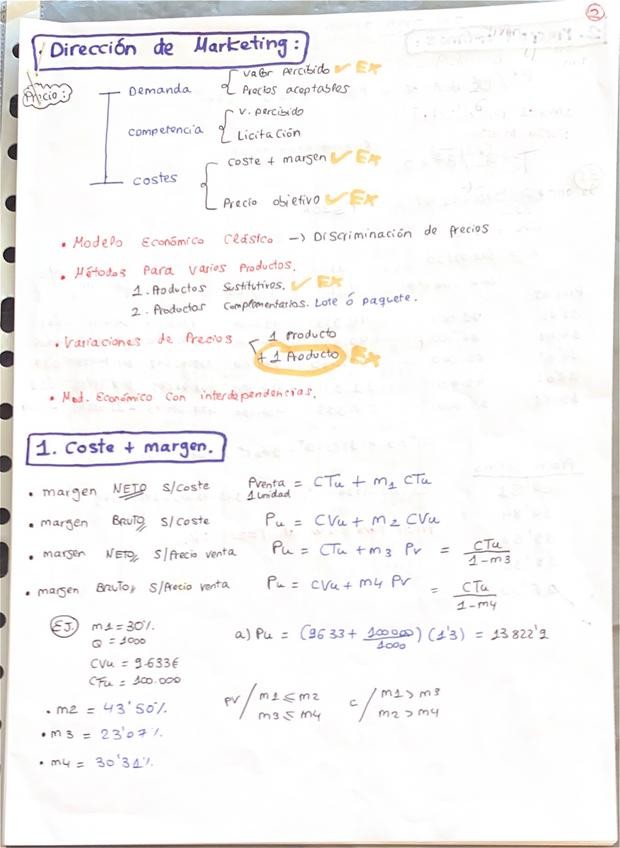 2
Dirección de Marketing:
Precio:
Demanda { valor percibido ✓ EX
Precios aceptables
competencia { v. percibido
Licitación
costes { coste + margen ✓ EX
Precio objetivo ✓ EX
• Modelo Económico Clásico → Discriminación de precios
• Métodos Para Varios Productos.
1. Productos Sustitutivos. ✓ EX
2. Productos Complementarios. Lote ó paquete.
• Variaciones de Precios 1 Producto
+ 1 Producto EX
• Mod. Económico con interdependencias.
1. Coste + margen.
• margen NETO S/Coste Pventa 1 Unidad = CTu + m1 CTu
• margen BRUTO S/Coste Pu = CVu + m2 CVu
• margen NETO, S/Precio venta Pu = CTu + m3 Pv = CTu / 1-m3
• margen BRUTO, S/Precio venta Pu = CVu + m4 Pv = CTu / 1-m4
EJ. m1 = 30%. a) Pu = (9633 + 100000/1000) (1'3) = 13822'9
Q = 1000
CVu = 9.633€
CFu = 100.000
• m2 = 43'50%. PV / m1 ≤ m2 C / m1 > m3
• m3 = 23'07%. m3 ≤ m4 m2 > m4
• m4 = 30'31%.